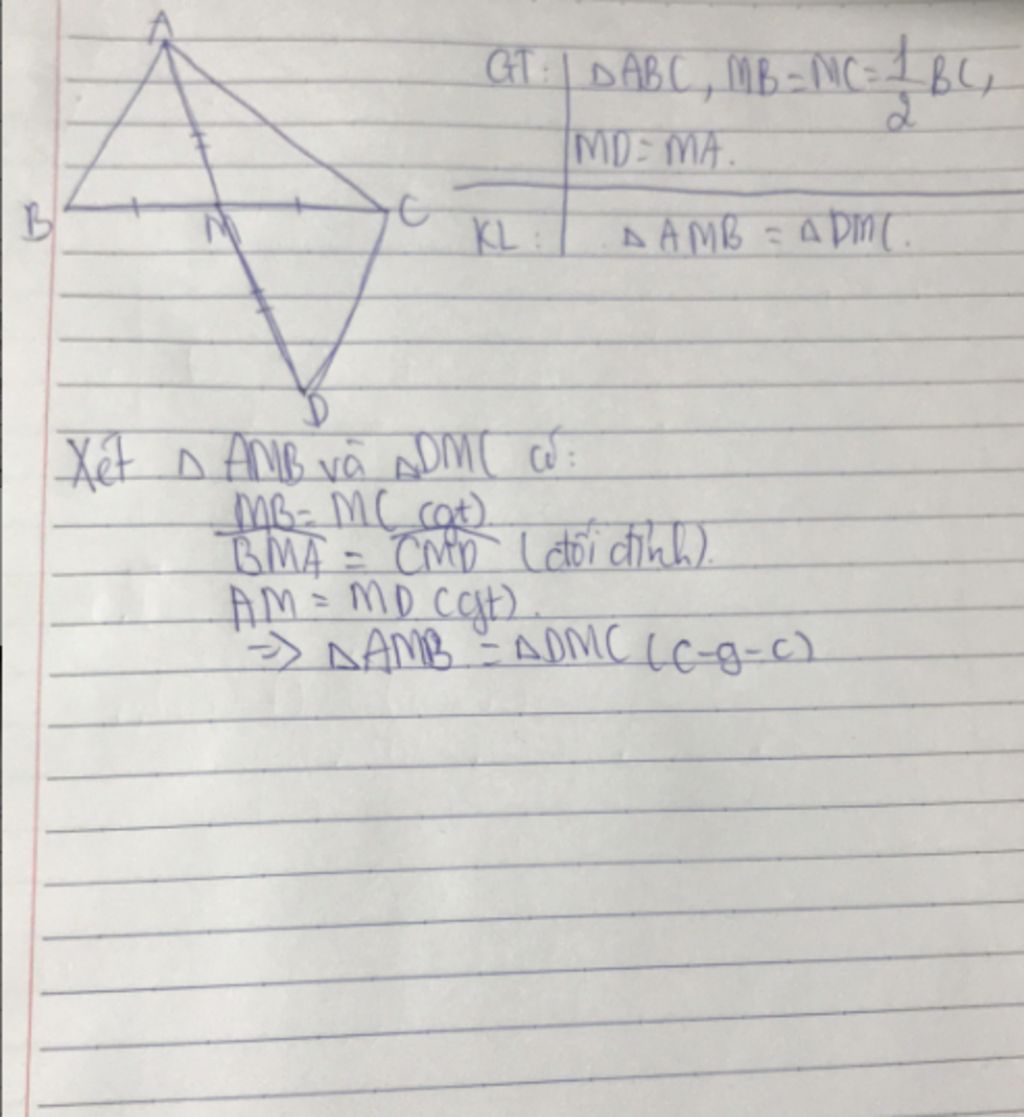 A
GT: ΔABC, MB=MC=1/2 BC,
MD=MA.
B M C
KL: ΔAMB = ΔDMC.
D
Xét Δ AMB và ΔDMC có:
MB= MC (gt)
BMA = CMD (đối đỉnh).
AM = MD (gt).
=> ΔAMB = ΔDMC (c-g-c)